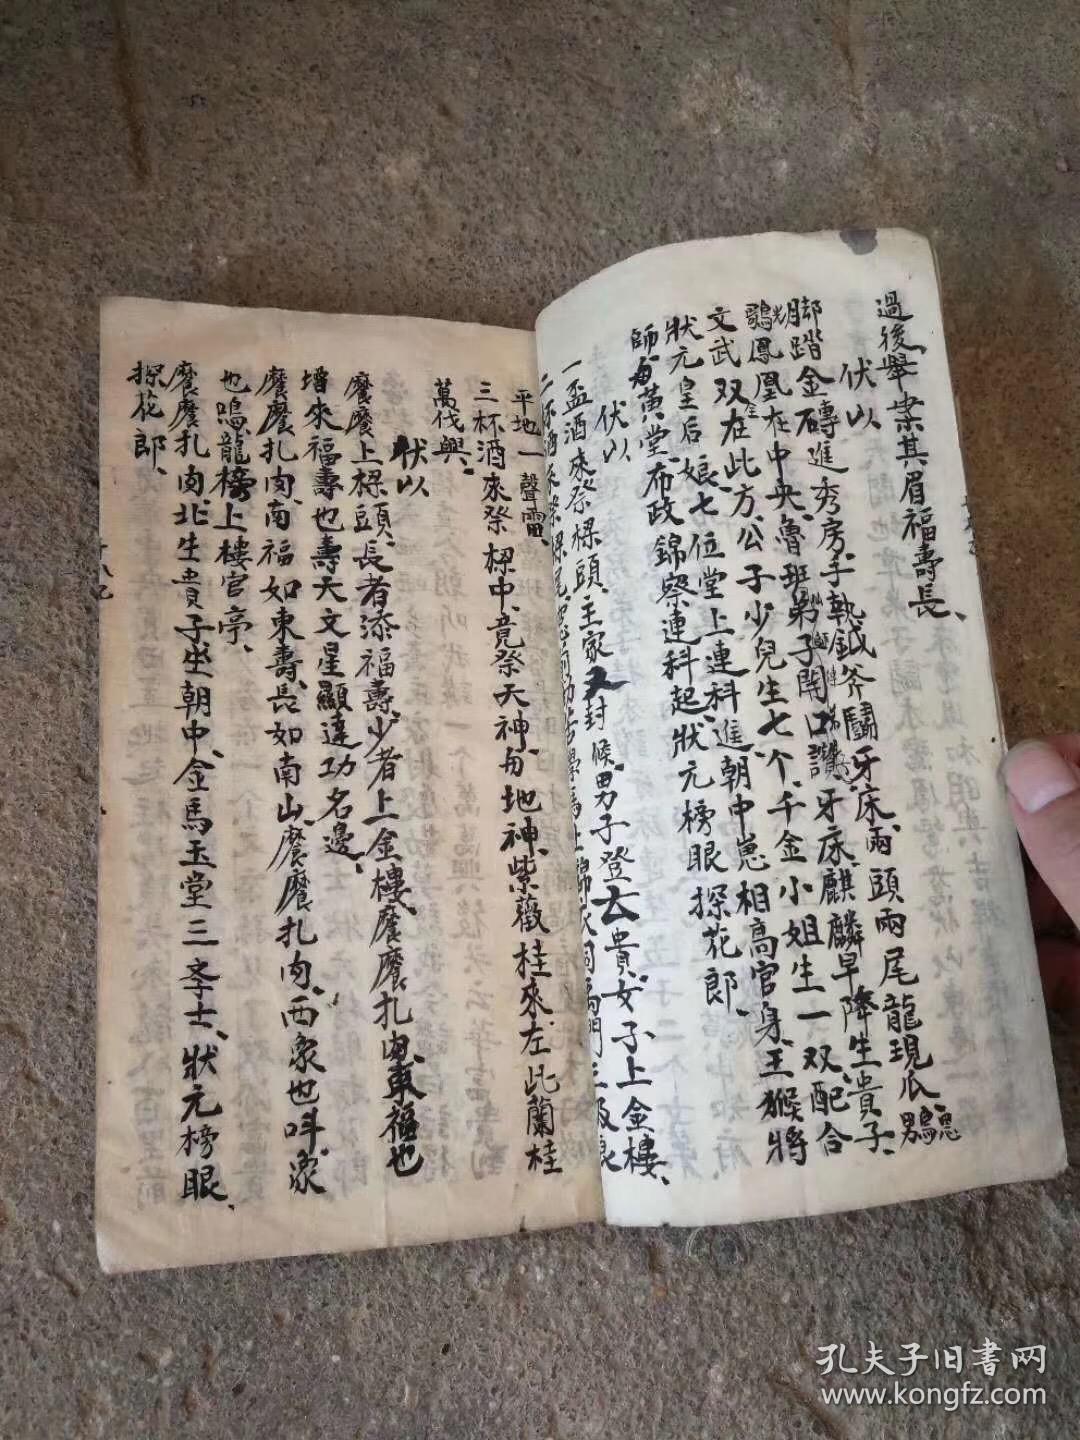 過後舉案其眉福壽長、
伏以
脚踏金磚進秀房、手執鉞斧鬪牙床、兩頭兩尾龍現瓜、
鳳凰在中央、魯班弟子開口讚牙床、麒麟早降生貴子、
文武双在此方、公子少兒生七个、千金小姐生一双、配合
狀元皇后娘、七位堂上連科進、朝中相高官身、王猴将
師黄堂、布政錦察連科起、狀元榜眼探花郎、
伏以
一盃酒來祭樑頭、主家又封候、男子登云貴、女子上金樓、
二杯酒來祭樑尾
平地一聲雷、
三杯酒來祭樑中、竟祭天神与地神、紫薇桂來左、此蘭桂
萬伐興、
伏以
上樑頭、長者添福壽、少者上金樓、扎肉東福也
增來福壽也壽、天文星顯達功名邊、
扎肉、南福如東壽長、如南山、扎肉、西象也呌、象
也鳴、龍榜上樓官亭、
扎肉、北生貴子坐朝中、金馬玉堂三李士、狀元榜眼、
探花郎、
孔夫子旧書网
www.kongfz.com